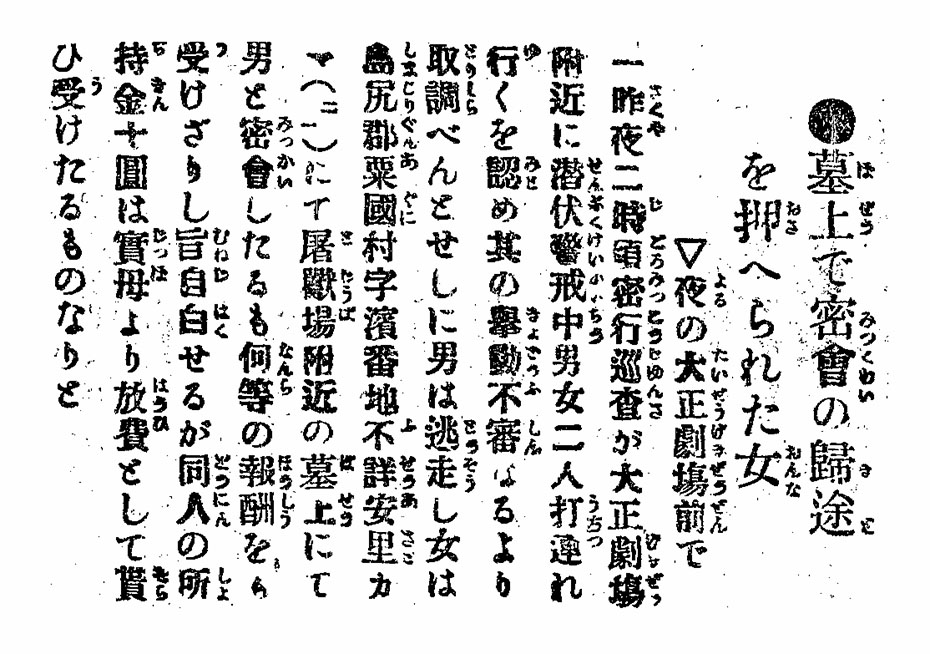 ●墓上で密會の歸途
を押へられた女
▽夜の大正劇場前で
一昨夜二時頃密行巡査が大正劇場
附近に潜伏警戒中男女二人打連れ
行くを認め其の擧動不審なるより
取調べんとせしに男は逃走し女は
島尻郡粟國村字濱番地不詳安里カ
マ(二一)にて屠獸場附近の墓上にて
男と密會したるも何等の報酬をも
受けざりし旨自白せるが同人の所
持金十圓は實母より放費として貰
ひ受けたるものなりと